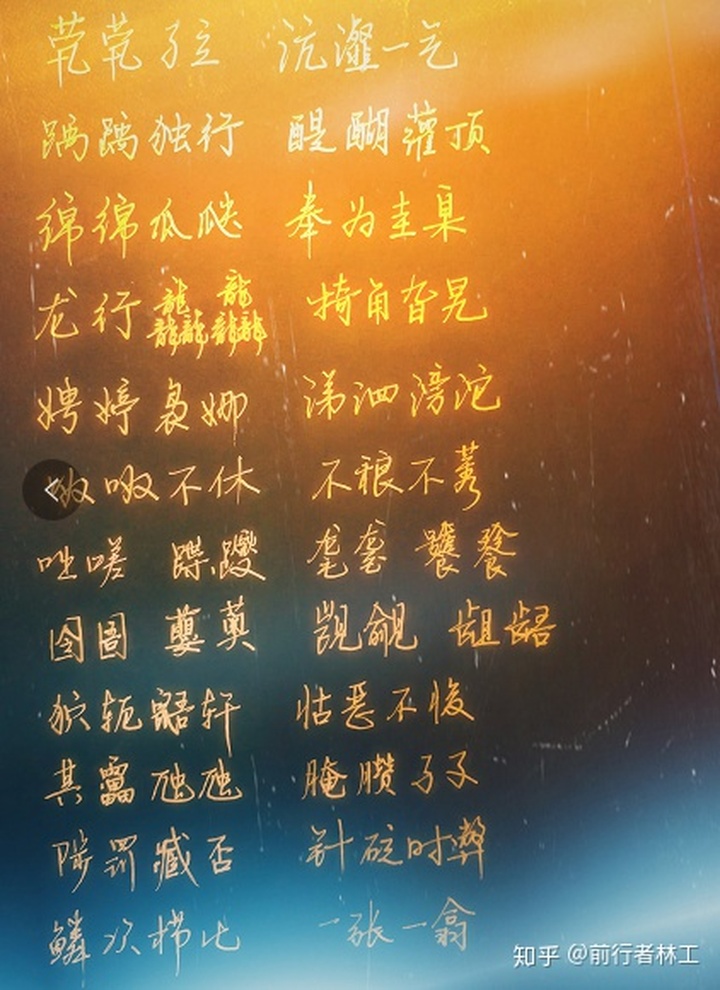 茕茕孑立 沆瀣一气
踽踽独行 醍醐灌顶
绵绵瓜瓞 奉为圭臬
龙行龘龘 犄角旮旯
娉婷袅娜 涕泗滂沱
呶呶不休 不稂不莠
咄嗟 蹀躞 耄耋 饕餮
囹圄 蘡薁 觊觎 龃龉
狖轭鼯轩 怙恶不悛
其靁虺虺 腌臜孑孓
陟罚臧否 针砭时弊
鳞次栉比 一张一翕
知乎 @前行者林工